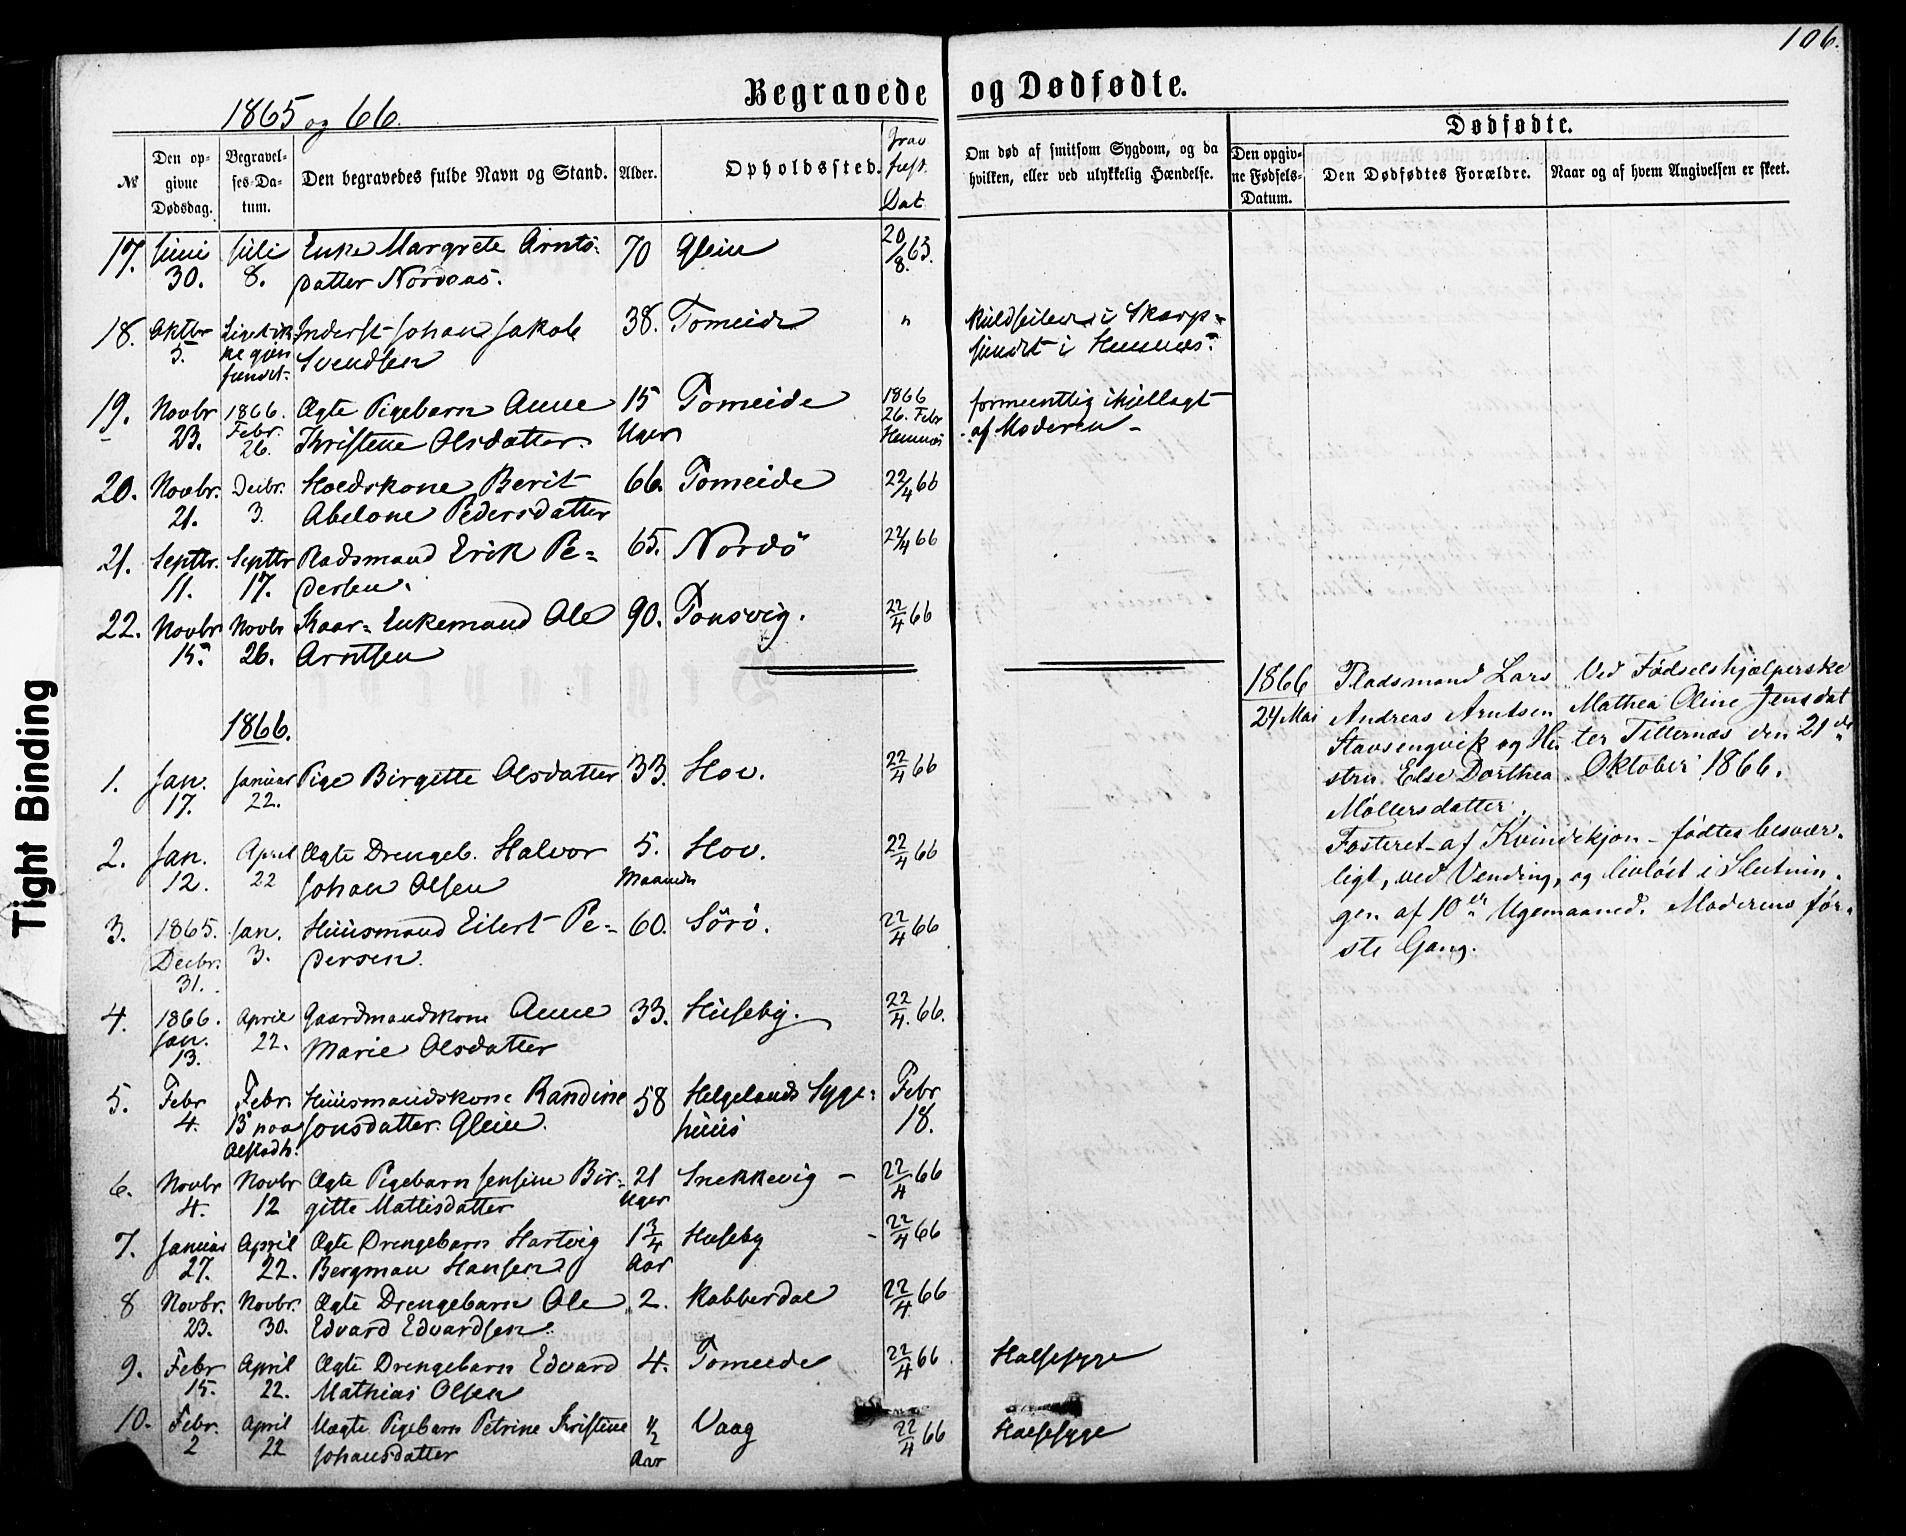 106.
Begravede og Dødfødte.
1865 og 66.
Dødfødte.
№
Den opgivne Dødsdag.
Begravelses-Datum.
Den begravedes fulde Navn og Stand.
Alder.
Opholdssted.
Dat.
Om død af smitsom Sygdom, og da hvilken, eller ved ulykkelig Hændelse.
Den opgivne Fødsels-Datum.
Den Dødfødtes Forældre.
Naar og af hvem Angivelsen er skeet.
17. Juni Juli Enke Margrete Arnts- 70 Glein 20/8 63.
30. 8. datter Nordaas.
18. Oktbr Liget ik- Inderst Johan Jakob 38. Tomeide " kuldseilede i Skarp-
5. ke gjen- Svendsen sundet i Hemnæs.
fundet.
19. Novbr 1866. Ægte Pigebarn Anne 15 Tomeide 1866 formeentlig ihjellagt
23. Febr. Kristine Olsdatter. Uger 26. Febr af Moderen
26. Hemnæs
20. Novbr. Decbr. Hoedskone Berit 66. Tomeide 22/4 66
21. 3. Abelone Pedersdatter
21. Septbr. Septbr Pladsmand Erik Pe- 65. Nordö 22/4 66
11. 17. dersen.
22. Novbr Novbr Kaar-Enkemand Ole 90. Tonsvig. 22/4 66
15. 26. Arntsen
1866.
1. Jan. Januar Pige Birgitte Olsdatter 33. Hov. 22/4 66
17. 22.
2. Jan. April Ægte Drengeb. Halvor 5. Hov. 22/4 66
12. 22 Johan Olsen Maaneder
3. 1865. Jan. Huusmand Eilert Pe- 60. Sörö. 22/4 66
Decbr. 3. dersen.
31.
4. 1866. April Gaardmandskone Anne 33. Huseby. 22/4 66.
Jan. 22. Marie Olsdatter
13.
5. Febr Febr. Huusmandskone Randine 58 Helgelands Syge- Febr
4. 13 paa Jonsdatter Glein. huus 18.
Alstadh.
6. Novbr Novbr Ægte Pigebarn Jensine Bir- 21 Snekkevig - 22/4 66
4. 12 gitte Mattisdatter Uger
7. Januar April Ægte Drengebarn Hartvig 1 3/4 Huseby - 22/4 66
27. 22. Bergman Hansen Aar
8 Novbr. Novbr. Ægte Drengebarn Ole 2. Kobberdal 22/4 66
23. 30. Edvard Edvardsen.
9. Febr April Ægte Drengebarn Edvard 4. Tomeide 22/4 66 Halsesyge
15. 22. Mathias Olsen
10. Febr. April Uægte Pigebarn Petrine Kristine 1/2 Vaag 22/4 66 Halsesyge
2 22 Johansdatter Aar
1866 Pladsmand Lars Ved Fødselshjælperske
24 Mai Andreas Arntsen Mathea Oline Jensdat
Stavsengvik og Hu- ter Tillernæs den 21de
stru Else Dorthea Oktober 1866.
Möllersdatter.
Fosteret af Kvindekjøn fødtes besvær-
ligt, ved Vending, og livløst i Slutnin-
gen af 10de Ugemaaned. Moderens før-
ste Gang.
Tight Binding